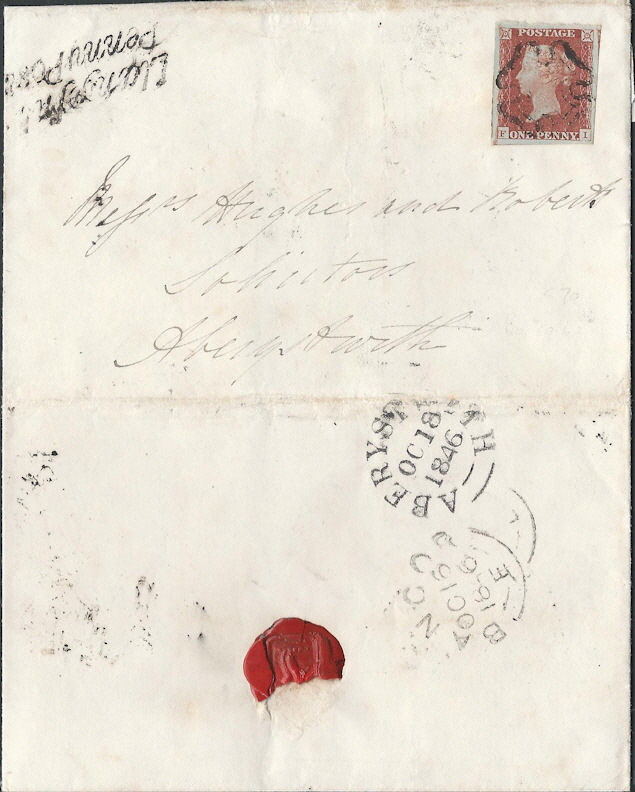 Penny Post
POSTAGE
F ONE PENNY I
Messrs Hughes and Roberts
Solicitors
Aberystwith
ABERYSTWITH
OC 18
1846